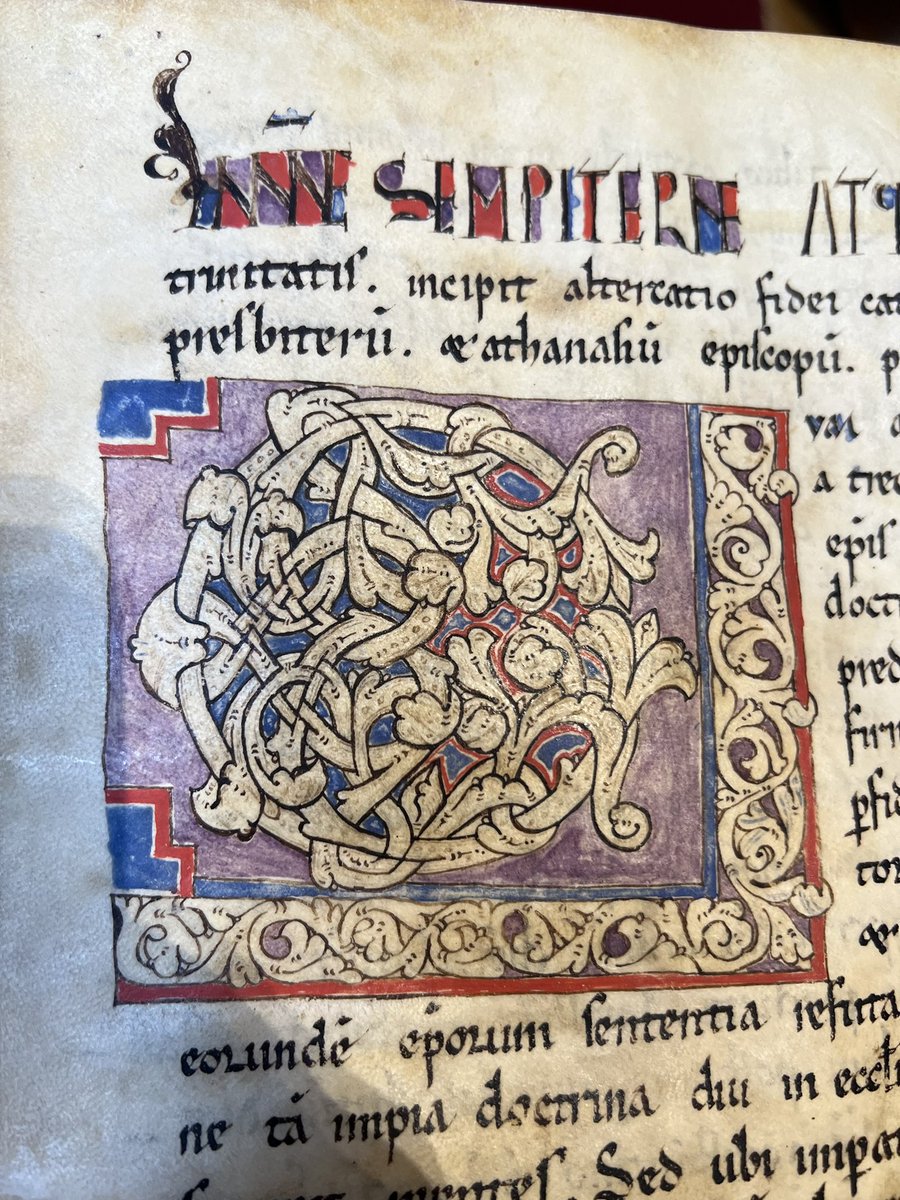 IN NN̄E SEMPITERNE AT
trinitatis. incipit altercatio fidei cat
presbiterū. & athanasiū episcopū. p
epis
doct
pred
fir
ꝑfid
tor
&
eorundē ep̄orum sententia
ne tā impia doctrina diu in eccl
Sed ubi